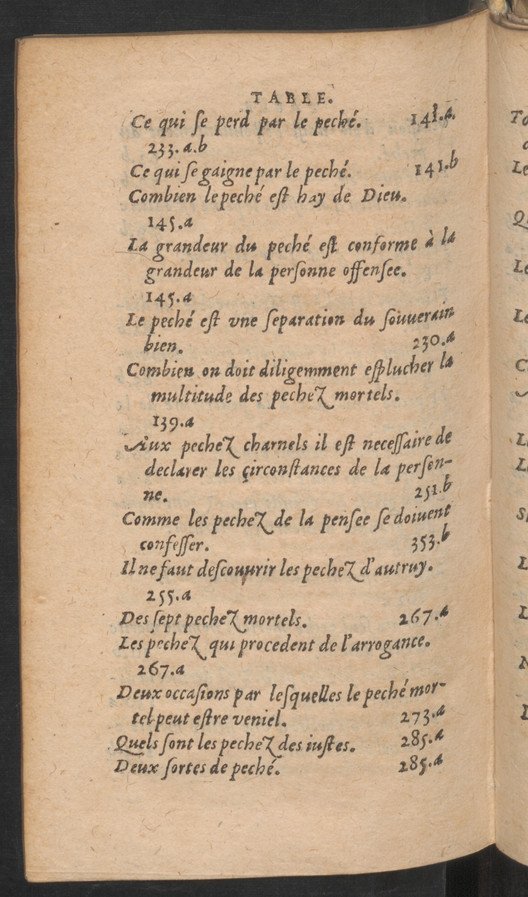 TABLE.
Ce qui ſe perd par le peché. 141.a.
233. a.b
Ce qui ſe gaigne par le peché. 141.b
Combien le peché eſt hay de Dieu.
145.a
La grandeur du peché eſt conforme à la
grandeur de la perſonne offenſee.
145.a
Le peché eſt vne ſeparation du ſouuerain
bien. 230.a
Combien on doit diligemment eſplucher la
multitude des pechez mortels.
139.a
Aux pechez charnels il eſt neceſſaire de
declarer les çirconſtances de la perſon-
ne. 251.b
Comme les pechez de la penſee ſe doiuent
confeſſer. 353.b
Il ne faut deſcouurir les pechez d'autruy.
255.a
Des ſept pechez mortels. 267.a
Les pechez qui procedent de l'arrogance.
267.a
Deux occaſions par leſquelles le peché mor-
tel peut eſtre veniel. 273.a
Quels ſont les pechez des iuſtes. 285.a
Deux ſortes de peché. 285.a